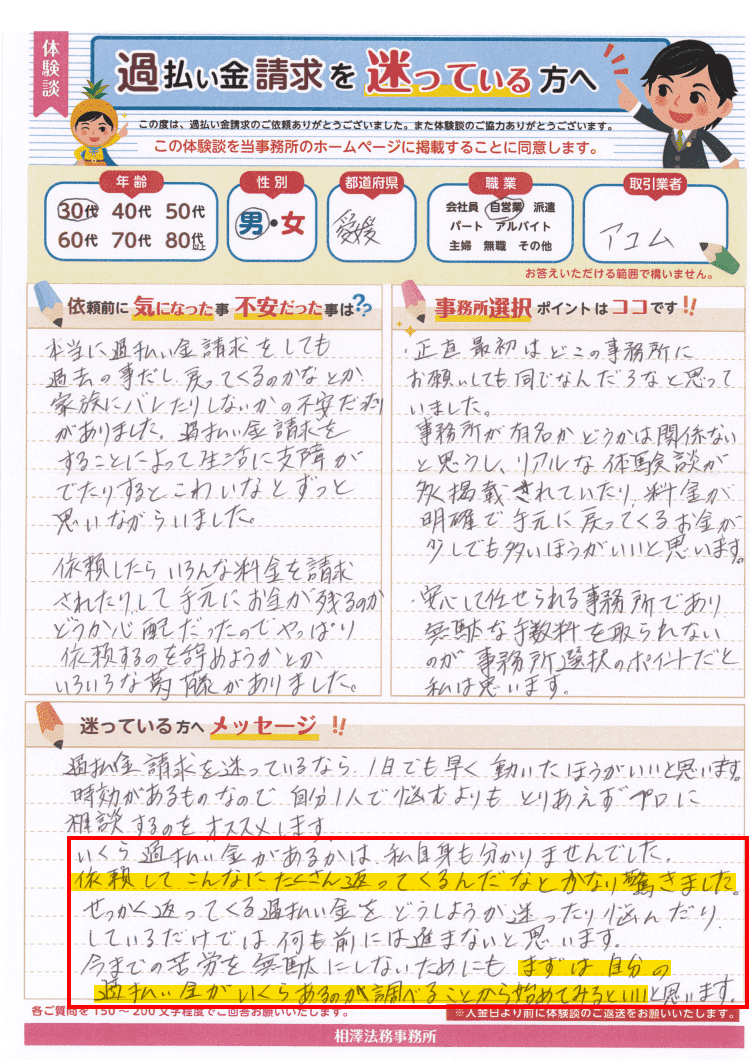 体験談
過払い金請求を迷っている方へ
この度は、過払い金請求のご依頼ありがとうございました。また体験談のご協力ありがとうございます。
この体験談を当事務所のホームページに掲載することに同意します。
年齢
30代 40代 50代
60代 70代 80代以上
性別
男・女
都道府県
愛媛
職業
会社員 自営業 派遣
パート アルバイト
主婦 無職 その他
取引業者
アコム
お答えいただける範囲で構いません。
依頼前に気になった事不安だった事は??
本当に過払い金請求をしても
過去の事だし、戻ってくるのかなとか
家族にバレたりしないかの不安だったり
がありました。過払い金請求を
することによって生活に支障が
でたりするとこわいなとずっと
思いながらいました。
依頼したらいろんな料金を請求
されたりして手元にお金が残るのか
どうか心配だったのでやっぱり
依頼するのを辞めようかとか
いろいろな葛藤がありました。
事務所選択ポイントはココです!!
・正直最初はどこの事務所に
お願いしても同じなんだろなと思って
いました。
事務所が有名かどうかは関係ない
と思うし、リアルな体験談が
多く掲載されていたり、料金が
明確で手元に戻ってくるお金が
少しでも多いほうがいいと思います。
・安心して任せられる事務所であり
無駄な手数料を取られない
のが事務所選択のポイントだと
私は思います。
迷っている方へメッセージ!!
過払金請求を迷っているなら、1日でも早く動いたほうがいいと思います。
時効があるものなので自分1人で悩むよりもとりあえずプロに
相談するのをオススメします
いくら過払い金があるかは、私自身も分かりませんでした。
依頼してこんなにたくさん返ってくるんだなとかなり驚きました。
せっかく返ってくる過払い金をどうしようか迷ったり悩んだり
しているだけでは何も前には進まないと思います。
今までの苦労を無駄にしないためにも、まずは自分の
過払い金がいくらあるのか調べることから始めてみるといいと思います。
各ご質問を150～200文字程度でご回答お願いいたします。
※入金日より前に体験談のご返送をお願いいたします。
相澤法務事務所